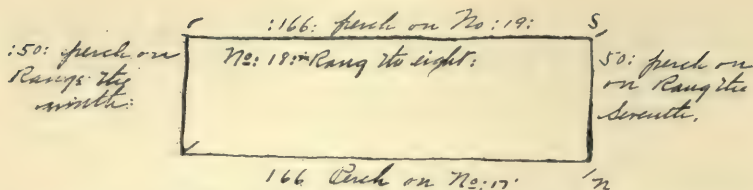 :166: perch on No: 19: S,
:50: perch on
Range the
ninth:
No: 18: Rang the eight:
50: perch on
on Rang the
Seventh.
166 Perch on No: 17 n